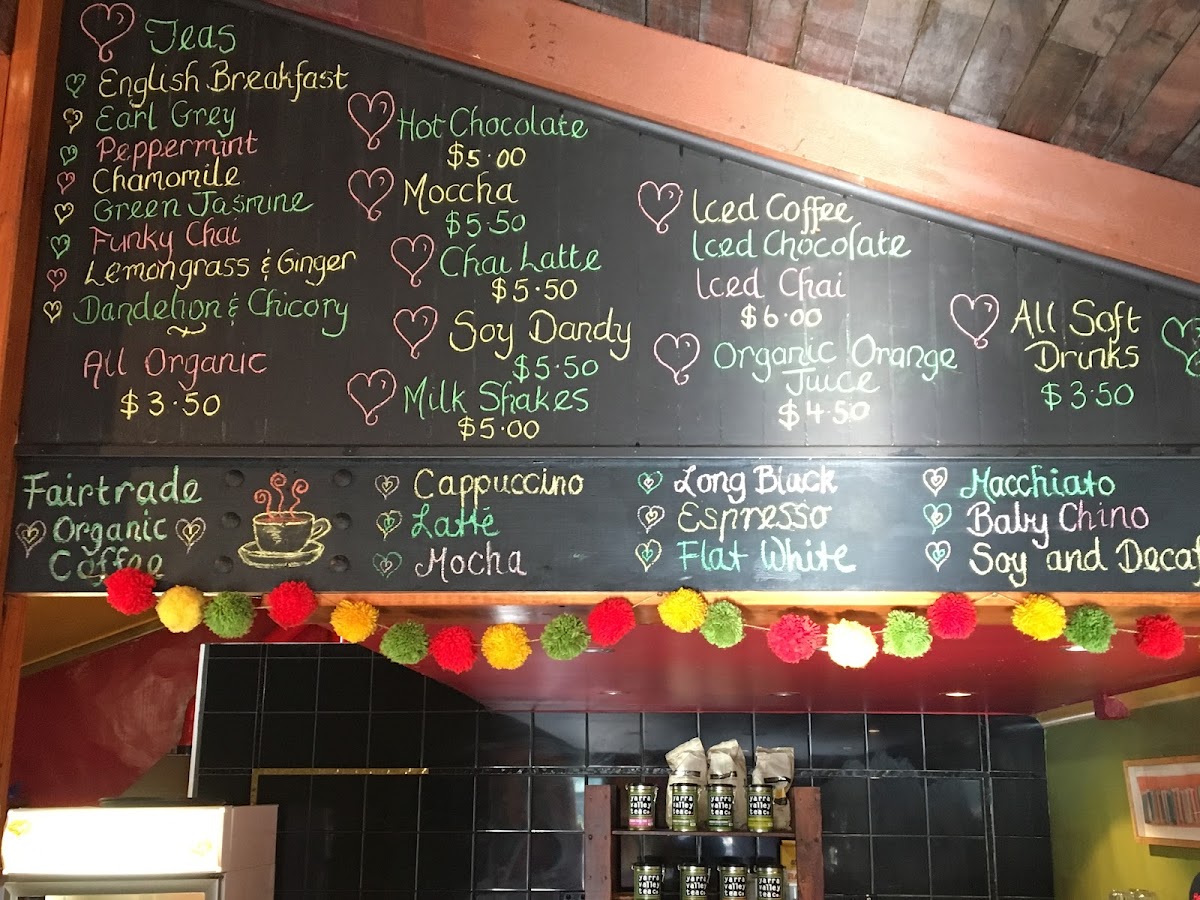 Teas
English Breakfast
Earl Grey
Peppermint
Chamomile
Green Jasmine
Funky Chai
Lemongrass & Ginger
Dandelion & Chicory
All Organic
$3.50
Hot Chocolate
$5.00
Moccha
$5.50
Chai Latte
$5.50
Soy Dandy
$5.50
Milk Shakes
$5.00
Iced Coffee
Iced Chocolate
Iced Chai
$6.00
Organic Orange
Juice
$4.50
All Soft
Drinks
$3.50
Fairtrade
Organic
Coffee
Cappuccino
Latté
Mocha
Long Black
Espresso
Flat White
Macchiato
Baby Chino
Soy and Decaf
yarra
valley
tea co
yarra
valley
tea co
yarra
valley
tea co
yarra
valley
tea co
yarra
valley
tea co
yarra
valley
tea co
yarra
valley
tea co
yarra
valley
tea co